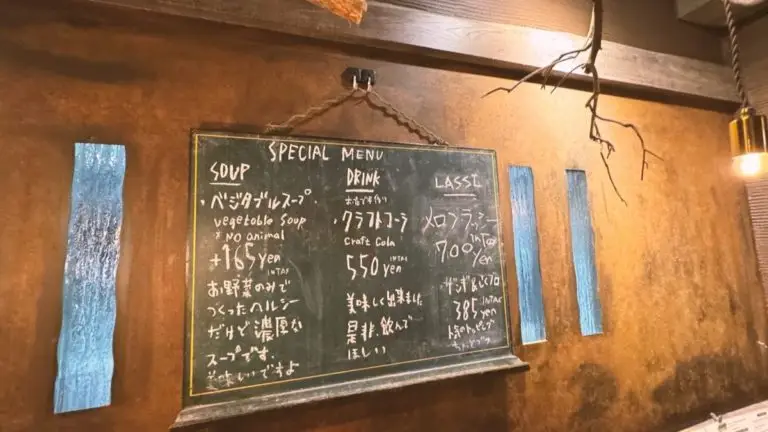 SPECIAL MENU
SOUP
ベジタブルスープ
vegetable soup
* NO animal
+165yen
INTAX
お野菜のみで
つくったヘルシー
だけど濃厚な
スープです.
美味しいですよ
DRINK
・クラフトコーラ
craft Cola
550yen
INTAX
美味しく出来ました
是非飲んで
ほしい
LASSI
メロンラッシー
700yen
INTAX
385yen
INTAX
人気のトッピング